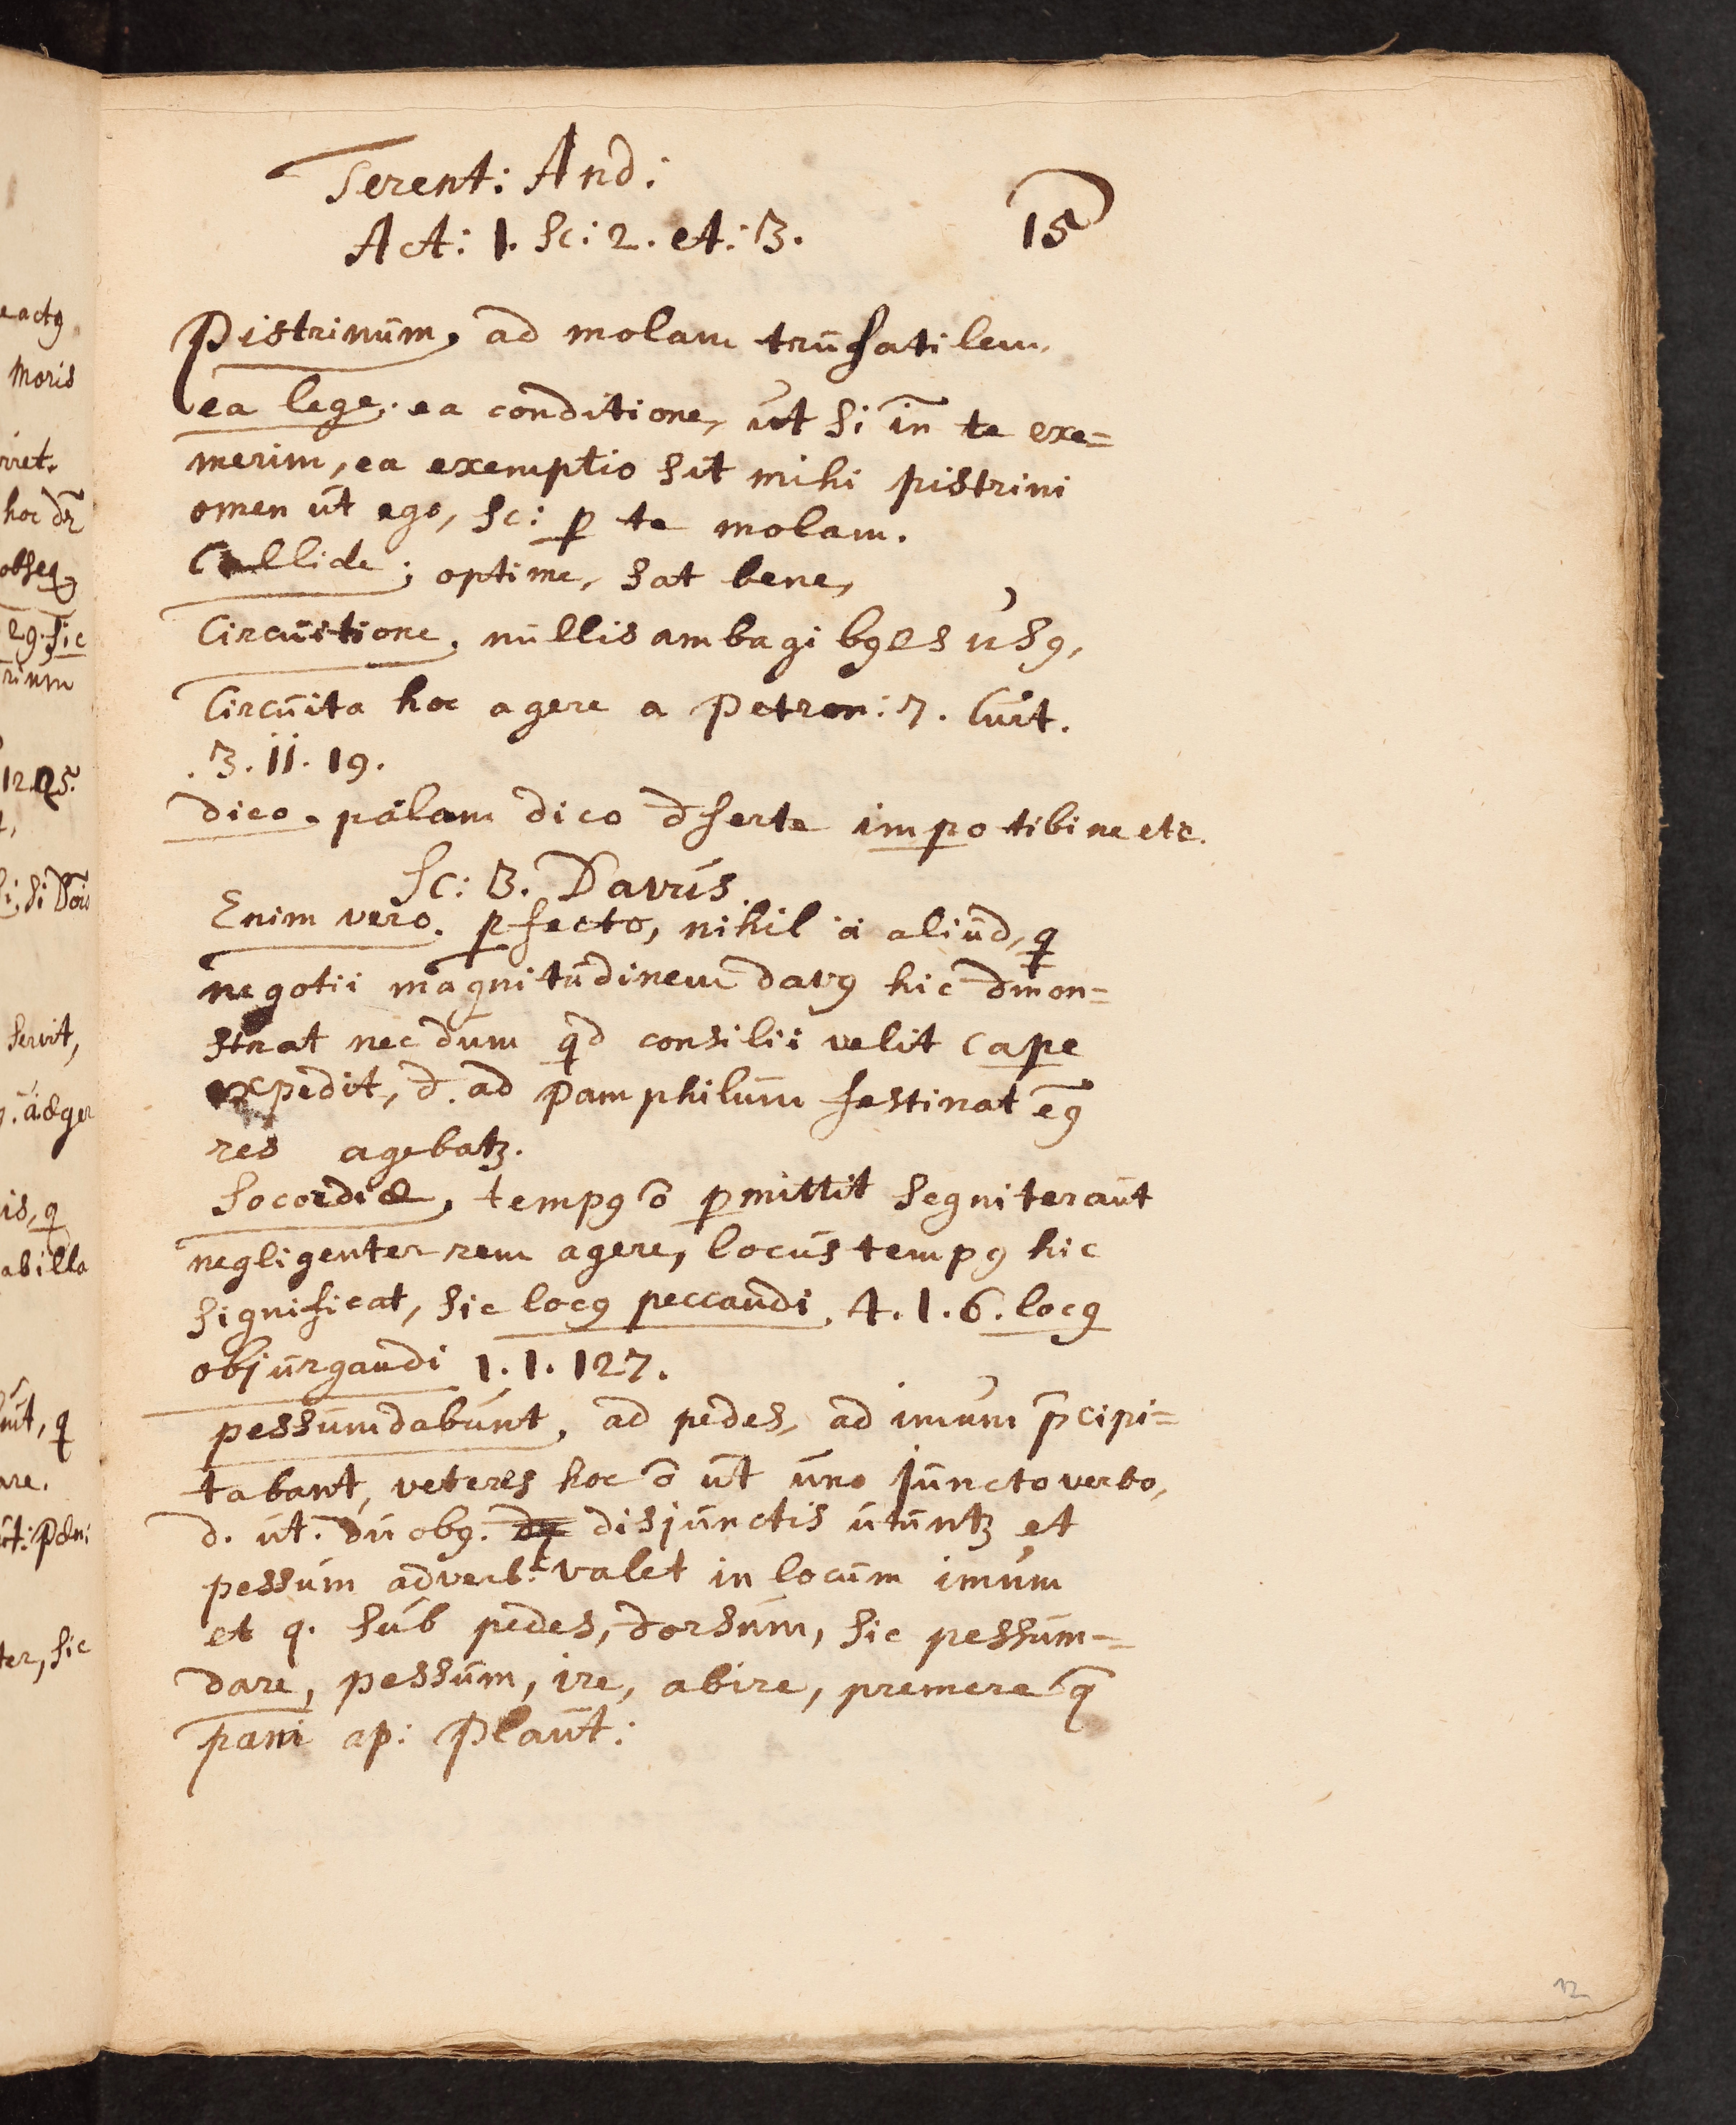 Terent: And:
Act: 1. Sc: 2. et: 3.
15
Pistrinum, ad molam trusatilem.
ea lege. ea conditione, ut si in te exe=
merim, ea exemptio sit mihi pistrini
omen ut ego, sc: ꝑ te molam.
Callide; optime, sat bene,
Circuitione. nullis ambagibꝰ es usꝰ,
Circuita hoc agere a Petron: 7. Curt.
.3.11.19.
dico. palam dico dserte impo tibi ne etc.
Sc: 3. Davus
Enim vero. ꝑfecto, nihil a aliud, q̄
negotii magnitudinem davꝰ hic dmon=
strat nec dum qd consilii velit cape
expedit, d. ad Pamphilum festinat eꝰ
res agebatꝫ.
Socordiæ, tempꝰ ō ꝑmittit segniter aut
negligenter rem agere, locus tempꝰ hic
significat, sic locꝰ peccandi. 4.1.6. locꝰ
objurgandi 1.1.127.
pessumdabunt. ad pedes, ad imum p̄cipi=
tabant, veteres hoc ō ut uno juncto verbo,
d. ut. duobꝰ. disjunctis utuntꝫ et
pessum adverb: valet in locum imum
et q. sub pedes, dorsum, sic pessum=
dare, pessum, ire, abire, premere q̄
pani ap: Plaut:
12
eactꝰ
moris
rret.
hoc dr̄
obseq
29. sic
rinm
12.25.
servit,
æger
is, q
ab illa
nut, q
re.
ter, sic